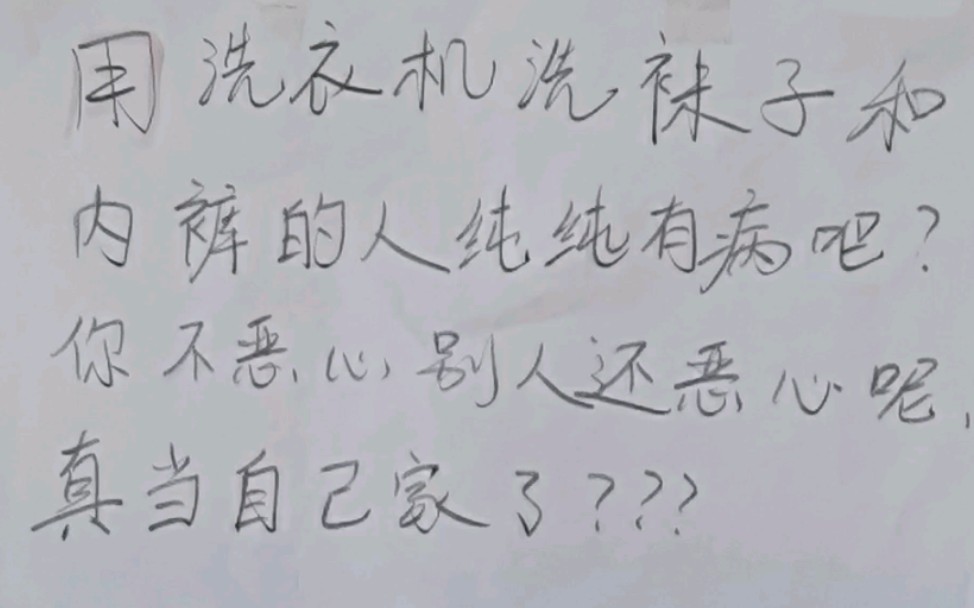 用洗衣机洗袜子和
内裤的人纯纯有病吧?
你不恶心,别人还恶心呢,
真当自己家了???